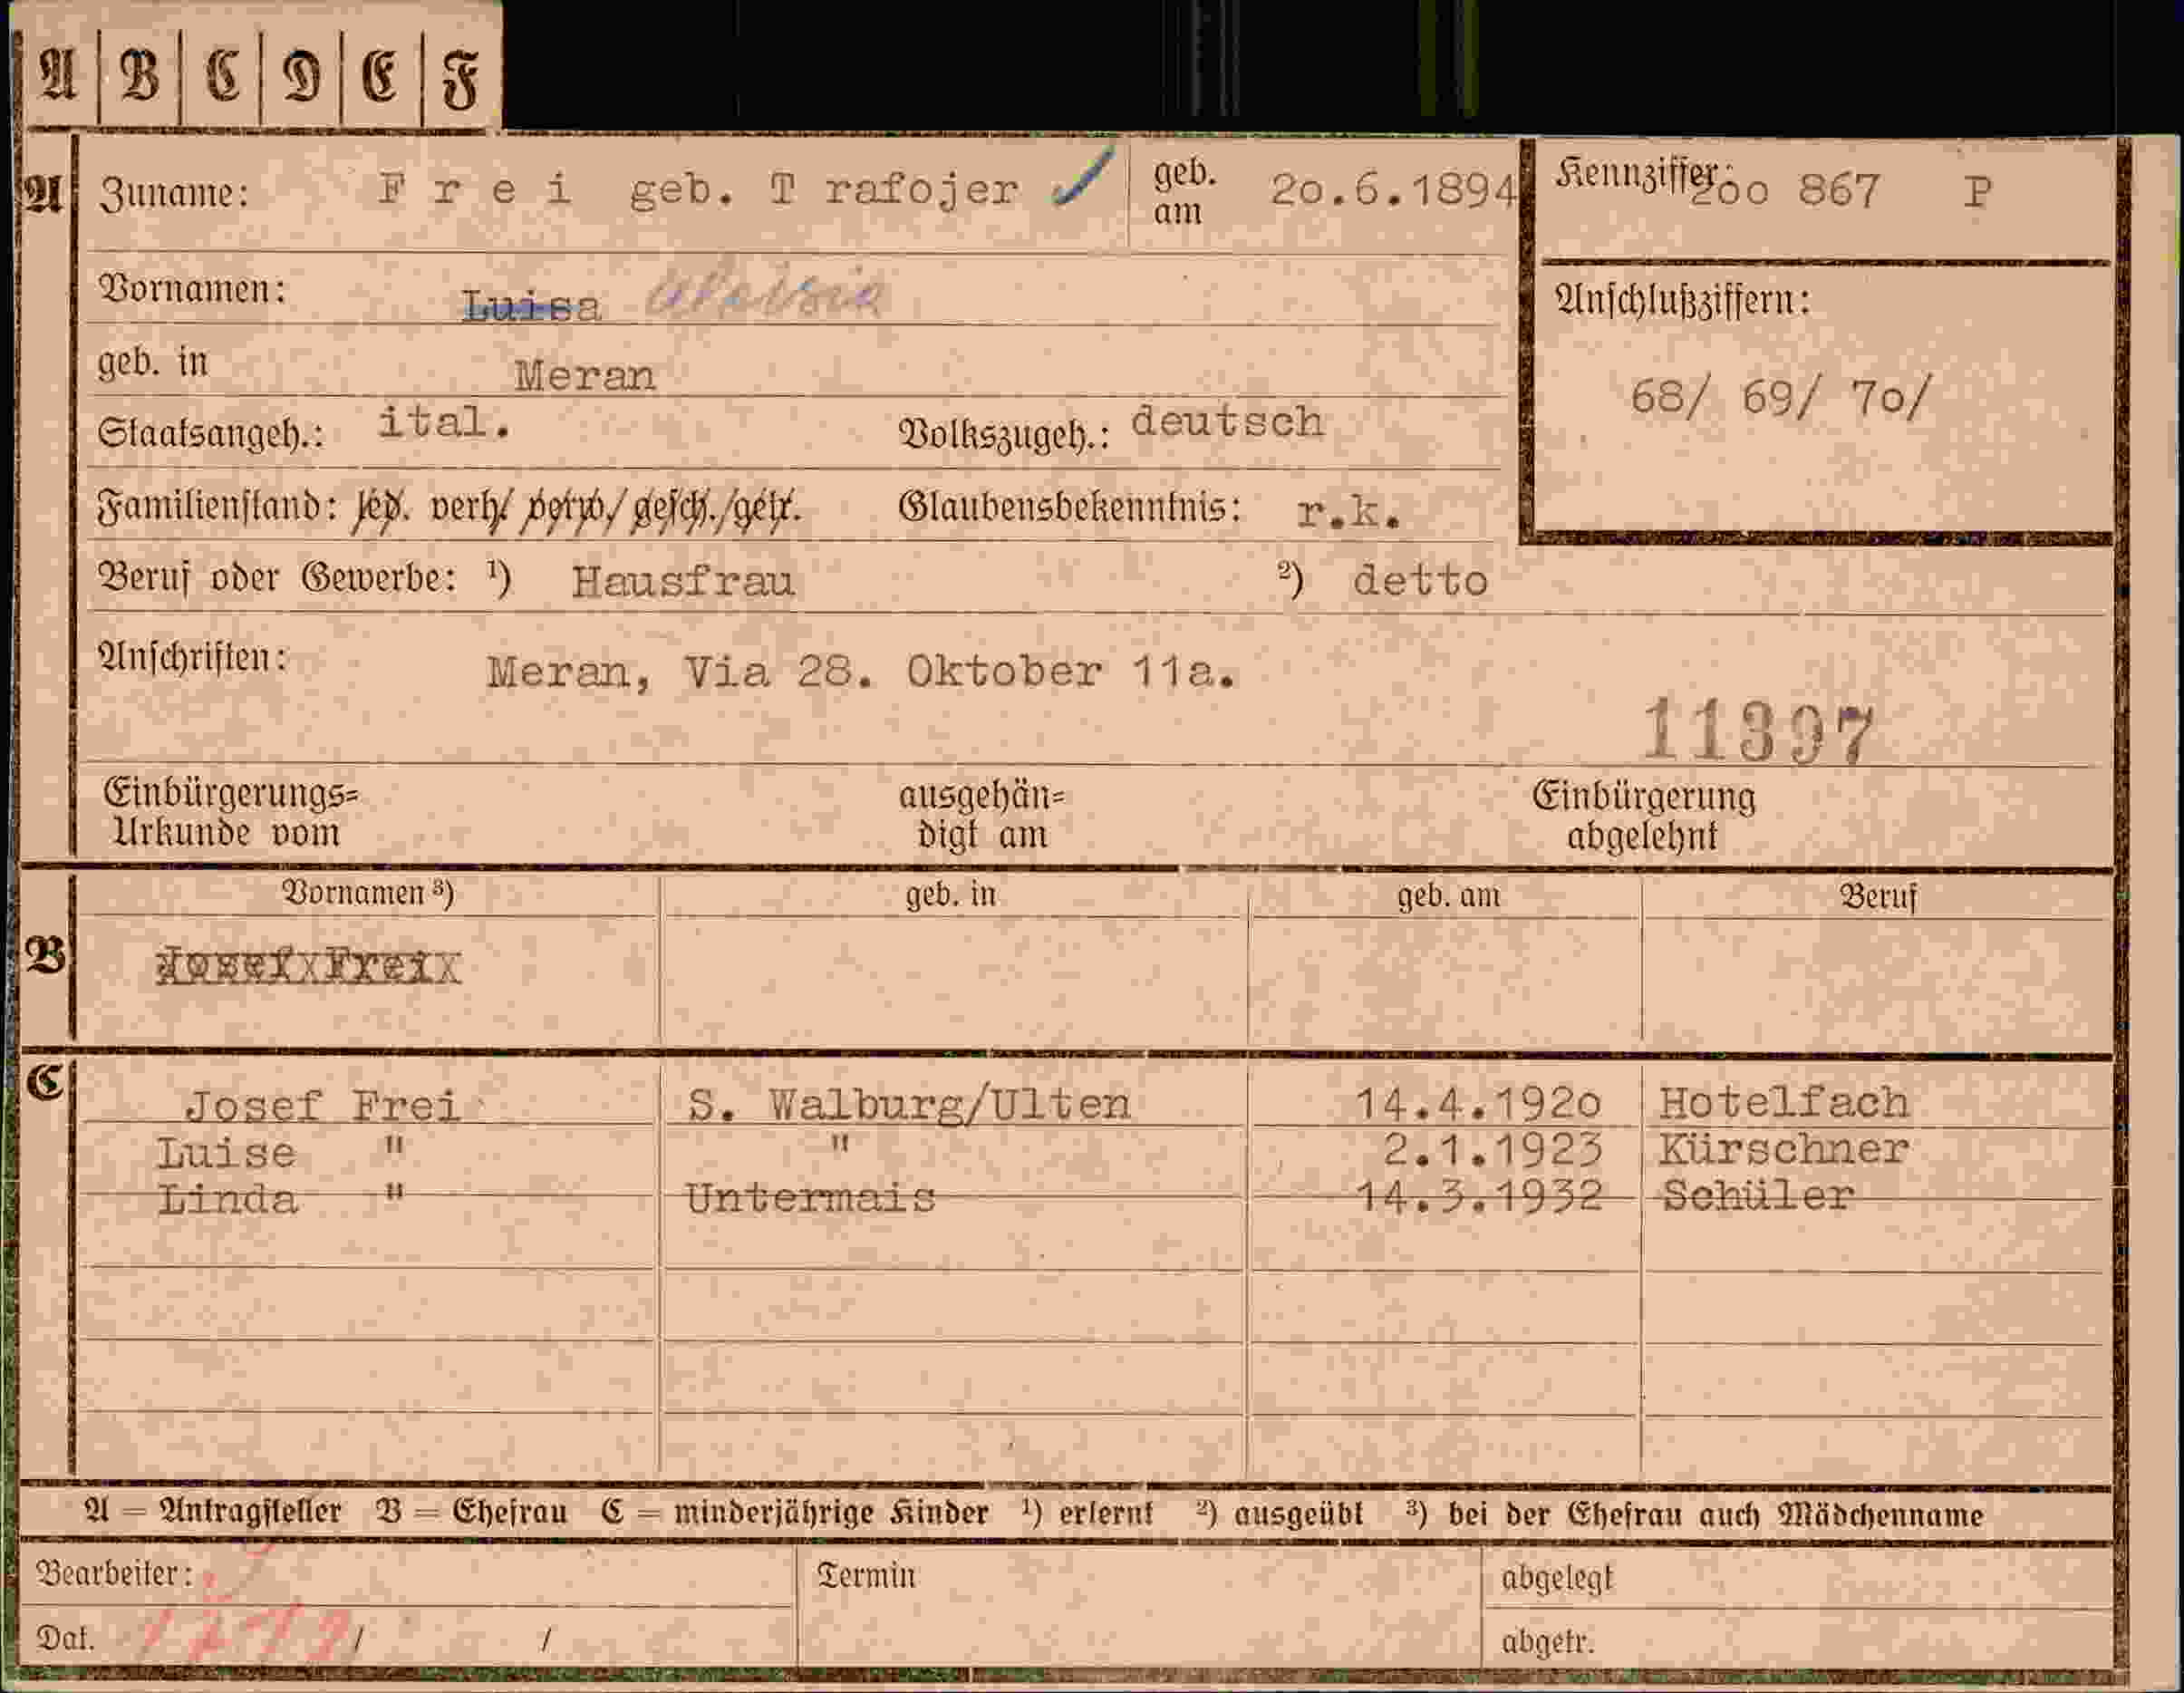 A B C D E F
A Zuname: F r e i geb. T rafojer geb. am 20.6.1894 Kennziffer: 200 867 P
Vornamen: Luisa Aloisia
Anschlußziffern:
geb. in Meran
68/ 69/ 70/
Staatsangeh.: ital. Volkszugeh.: deutsch
Familienstand: led. verh/ verw/ gesch./getr. Glaubensbekenntnis: r.k.
Beruf oder Gewerbe: ¹) Hausfrau ²) detto
Anschriften: Meran, Via 28. Oktober 11a.
11397
Einbürgerungs= ausgehän= Einbürgerung
Urkunde vom digt am abgelehnt
Vornamen ³) geb. in geb. am Beruf
B Josef Frei
C
Josef Frei S. Walburg/Ulten 14.4.1920 Hotelfach
Luise " " 2.1.1923 Kürschner
Linda " Untermais 14.3.1932 Schüler
A = Antragsteller B = Ehefrau C = minderjährige Kinder ¹) erlernt ²) ausgeübt ³) bei der Ehefrau auch Mädchenname
Bearbeiter: Termin abgelegt
Dat. / / abgetr.